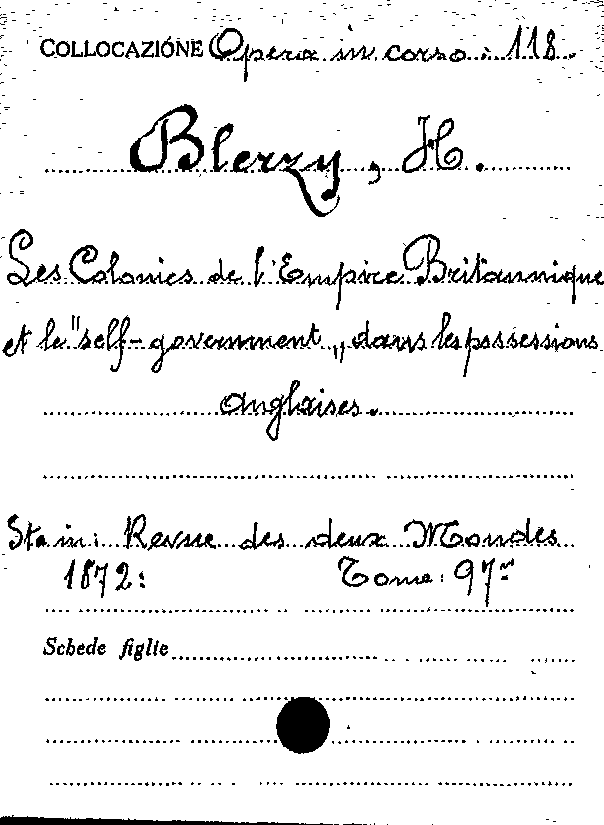 COLLOCAZIÓNE Opera in corso: 118.
Blerzy, H.
Les Colonies de l'Empire Britannique
et le "self-government" dans les possessions
anglaises.
Sta in: Revue des deux Mondes
1872: Tome: 97
Schede figlie